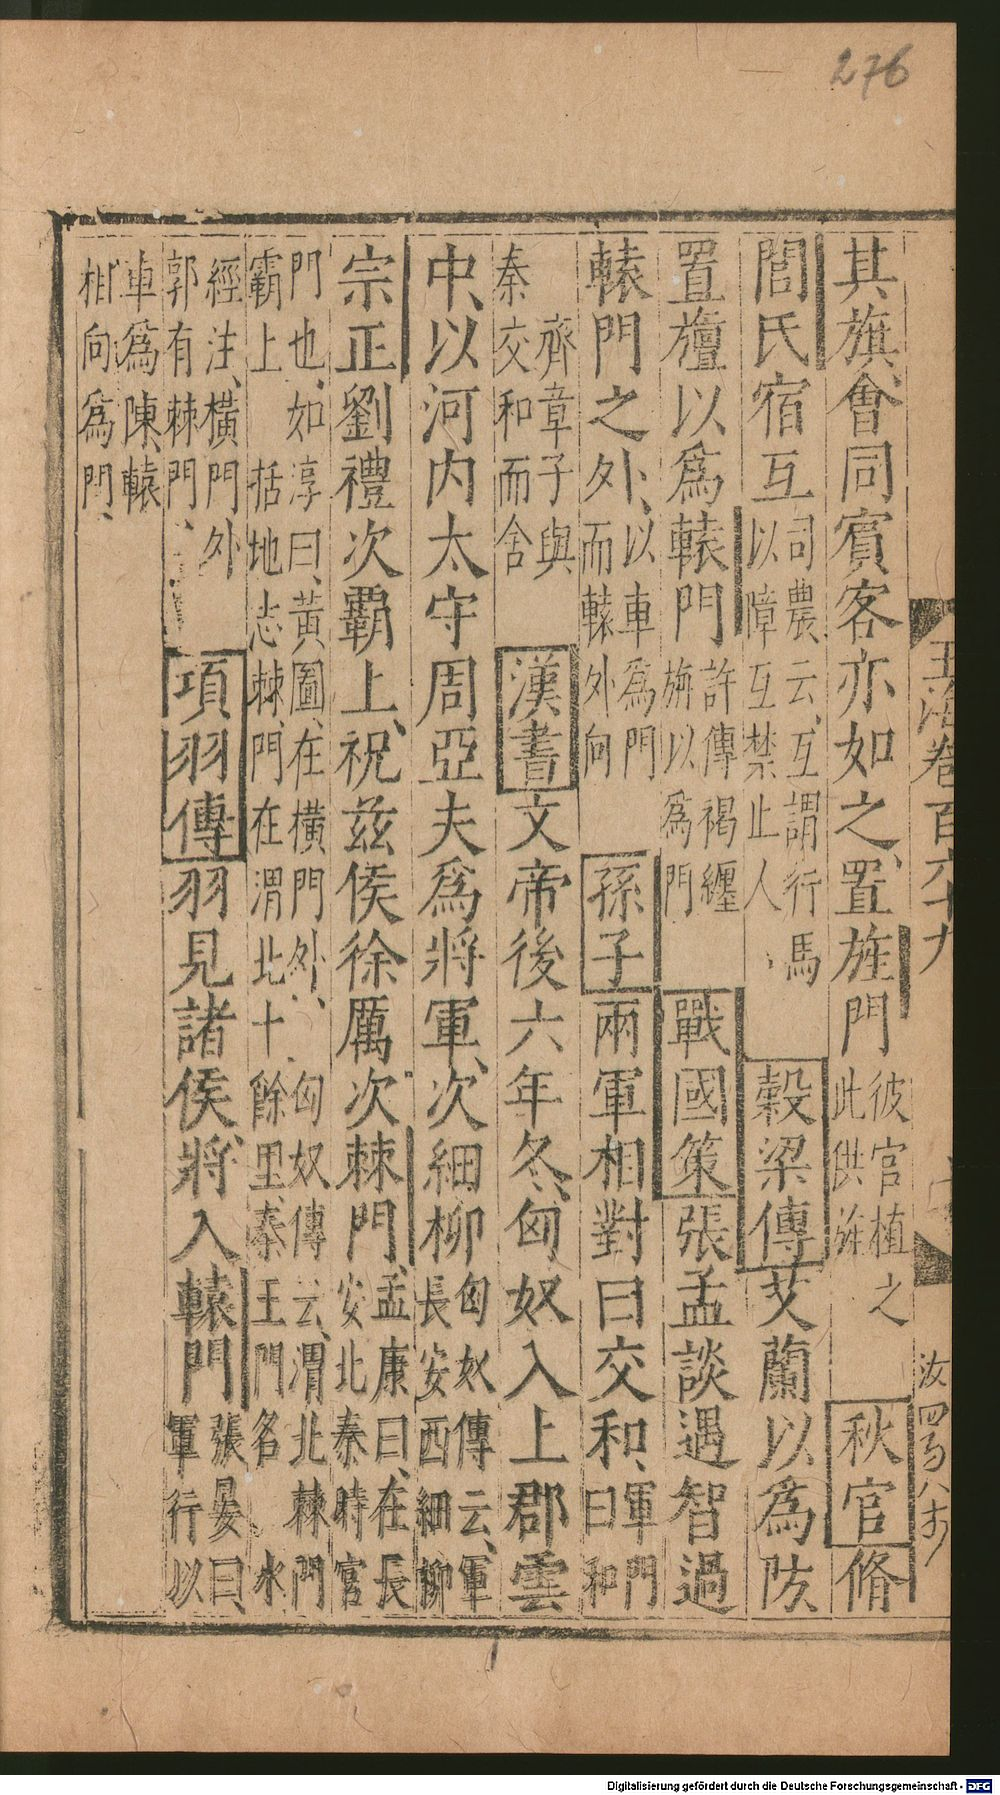 276
其旗會同賓客亦如之置旌門彼官植之此供旌秋官脩
閭氏宿互司農云互謂行馬以障互禁止人穀梁傳艾蘭以為防
置旃以爲轅門許傳褐纏旃以爲門戰國策張孟談遇智過
轅門之外以車爲門而轅外向孫子兩軍相對曰交和軍門曰和
齊章子與秦交和而舍漢書文帝後六年冬匈奴入上郡雲
中以河内太守周亞夫爲將軍次細柳匈奴傳云軍長安西細柳
宗正劉禮次覇上祝兹侯徐厲次棘門孟康曰在長安北秦時宮
門也如淳曰黃圖在橫門外匈奴傳云渭北棘門霸上括地志棘門在渭北十餘里秦王門名水
經注橫門外郭有棘門項羽傳羽見諸侯將入轅門張晏曰軍行以
車爲陳轅相向爲門
玉海卷百六十九
Digitalisierung gefördert durch die Deutsche Forschungsgemeinschaft - DFG